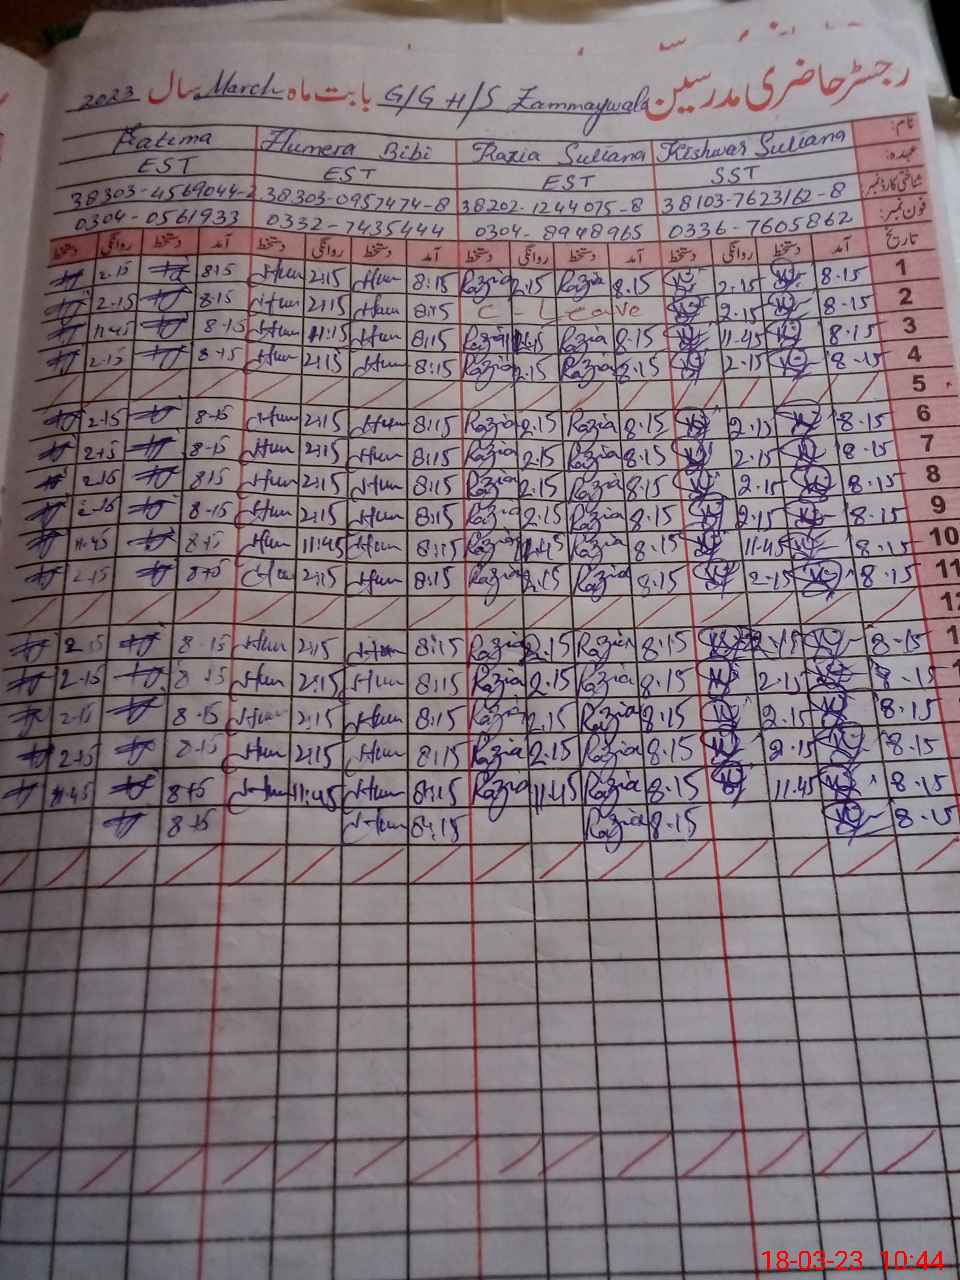 رجسٹر حاضری مدرسین G/G H/S Zammaywala بابت ماہ March سال 2023
نام: Kishwar Sultana Razia Sultana Humera Bibi Fatima
عہدہ: SST EST EST EST
شناختی کارڈ نمبر: 38103-7623162-8 38202-1244075-8 38303-0952474-8 38303-4569044-2
فون نمبر: 0336-7605862 0304-8948965 0332-7435444 0304-0561933
تاریخ آمد دستخط روانگی دستخط آمد دستخط روانگی دستخط آمد دستخط روانگی دستخط آمد دستخط روانگی دستخط
1 8.15 2.15 8.15 Razia 2.15 Razia 8:15 Hum 2:15 Hum 8.15 2.15
2 8.15 2.15 C-Leave 8:15 Hum 2:15 Hum 8.15 2.15
3 8.15 11.45 8.15 Razia Razia 8:15 Hum 11:15 Hum 8.15 11.45
4 8.15 2.15 8.15 Razia 2.15 Razia 8:15 Hum 2:15 Hum 8.15 2.15
5
6 8.15 2.15 8.15 Razia 2.15 Razia 8:15 Hum 2:15 Hum 8.15 2.15
7 8.15 2.15 8.15 Razia 2.15 Razia 8:15 Hum 2:15 Hum 8.15 2.15
8 8.15 2.15 8.15 Razia 2.15 Razia 8:15 Hum 2:15 Hum 8.15 2.15
9 8.15 2.15 8.15 Razia 2.15 Razia 8:15 Hum 2:15 Hum 8.15 2.15
10 8.15 11.45 8.15 Razia 11.45 Razia 8:15 Hum 11:45 Hum 8.15 11.45
11 8.15 2.15 8.15 Razia 2.15 Razia 8:15 Hum 2:15 Hum 8.15 2.15
12
1 8.15 2.15 8.15 Razia 2.15 Razia 8:15 Hum 2:15 Hum 8.15 2.15
8.15 2.15 8.15 Razia 2.15 Razia 8:15 Hum 2:15 Hum 8.15 2.15
8.15 2.15 8.15 Razia 2.15 Razia 8:15 Hum 2:15 Hum 8.15 2.15
8.15 2.15 8.15 Razia 2.15 Razia 8:15 Hum 2:15 Hum 8.15 2.15
8.15 11.45 8.15 Razia 11.45 Razia 8:15 Hum 11:45 Hum 8.15 11.45
8.15 8.15 Razia 8:15 Hum 8.15
18-03-23 10:44